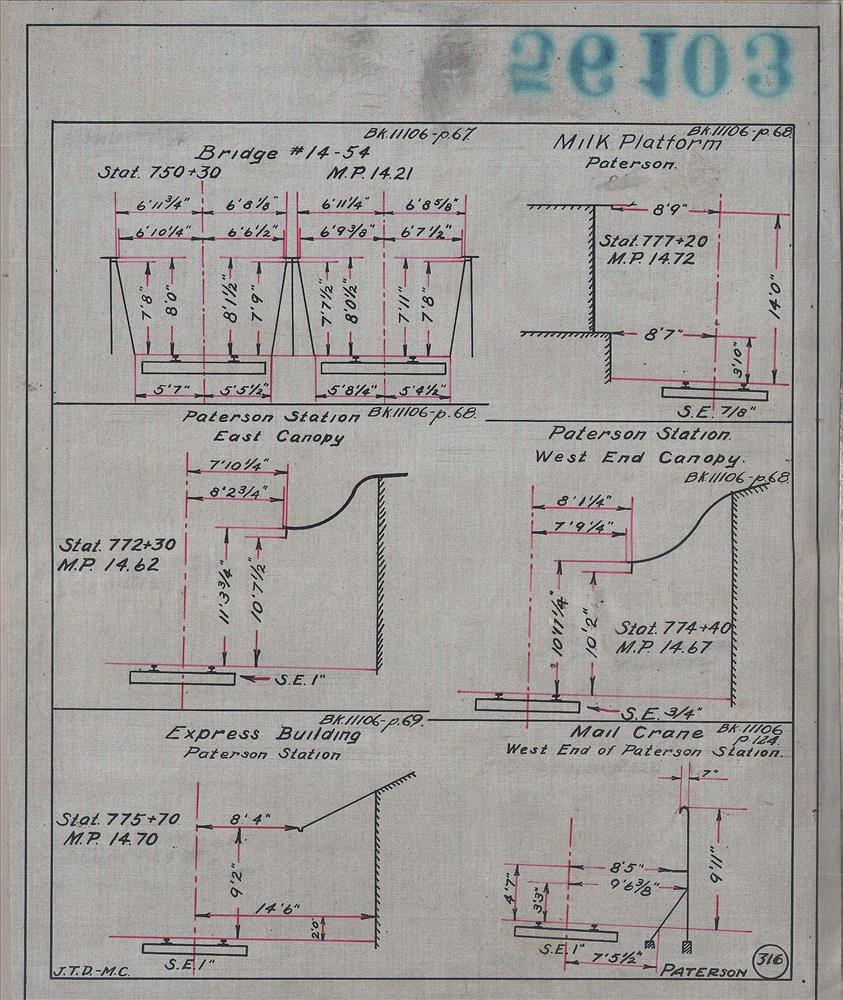 56103
BK.11106-p.67.
Bridge #14-54
Stat. 750+30 M.P. 14.21
6'11 3/4" 6'8 1/8" 6'11 1/4" 6'8 5/8"
6'10 1/4" 6'6 1/2" 6'9 3/8" 6'7 1/2"
7'8" 8'0" 8'1 1/2" 7'9" 7'7 1/2" 8'0 1/2" 7'11" 7'8"
5'7" 5'5 1/2" 5'8 1/4" 5'4 1/2"
BK.11106-p.68.
Milk Platform
Paterson.
8'9"
Stat. 777+20
M.P. 14.72
14'0"
8'7"
3'10"
S.E. 7/8"
Paterson Station BK.11106-p.68.
East Canopy
7'10 1/4"
8'2 3/4"
Stat. 772+30
M.P. 14.62
11'3 3/4" 10'7 1/2"
S.E. 1"
Paterson Station.
West End Canopy.
BK.11106-p.68.
8'1 1/4"
7'9 1/4"
10'11 1/4" 10'2"
Stat. 774+40
M.P. 14.67
S.E. 3/4"
BK.11106-p.69.
Express Building
Paterson Station
Stat. 775+70
M.P. 14.70
8'4"
9'2"
14'6"
2'0"
S.E. 1"
J.T.D.-M.C.
Mail Crane BK.11106
p.124.
West End of Paterson Station.
7"
8'5"
9'6 3/8"
4'7" 3'3"
11'6"
S.E. 1"
7'5 1/2"
PATERSON 316